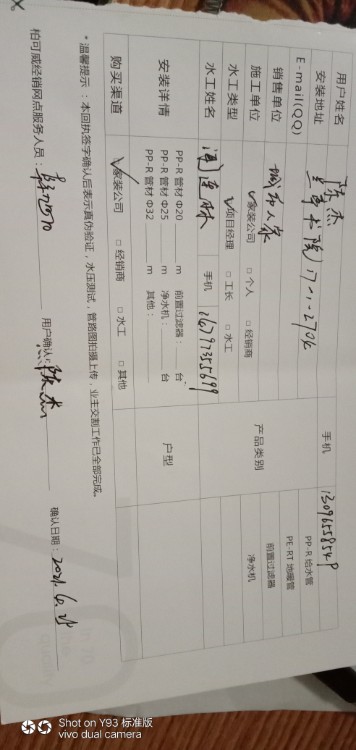 用户姓名 陈杰 手机 13096558549
安装地址 7-1-2704
E-mail(QQ) 产品类别 PP-R 给水管
PE-RT 地暖管
前置过滤器
净水机
销售单位 城市人家
施工单位 ✓家装公司 □ 个人 □ 经销商
水工类型 ✓项目经理 □ 工长 □ 水工
水工姓名 手机 16797355699
安装详情 PP-R 管材 Φ20 m 前置过滤器: 台 户型
PP-R 管材 Φ25 m 净水机: 台
PP-R 管材 Φ32 m 其他:
购买渠道 ✓家装公司 □ 经销商 □ 水工 □ 其他
*温馨提示:本回执签字确认后表示真伪验证,水压测试,管路图拍摄上传,业主交割工作已全部完成。
柏可威经销网点服务人员: 用户确认: 陈杰 确认日期: 2021.6.28
Shot on Y93 标准版
vivo dual camera